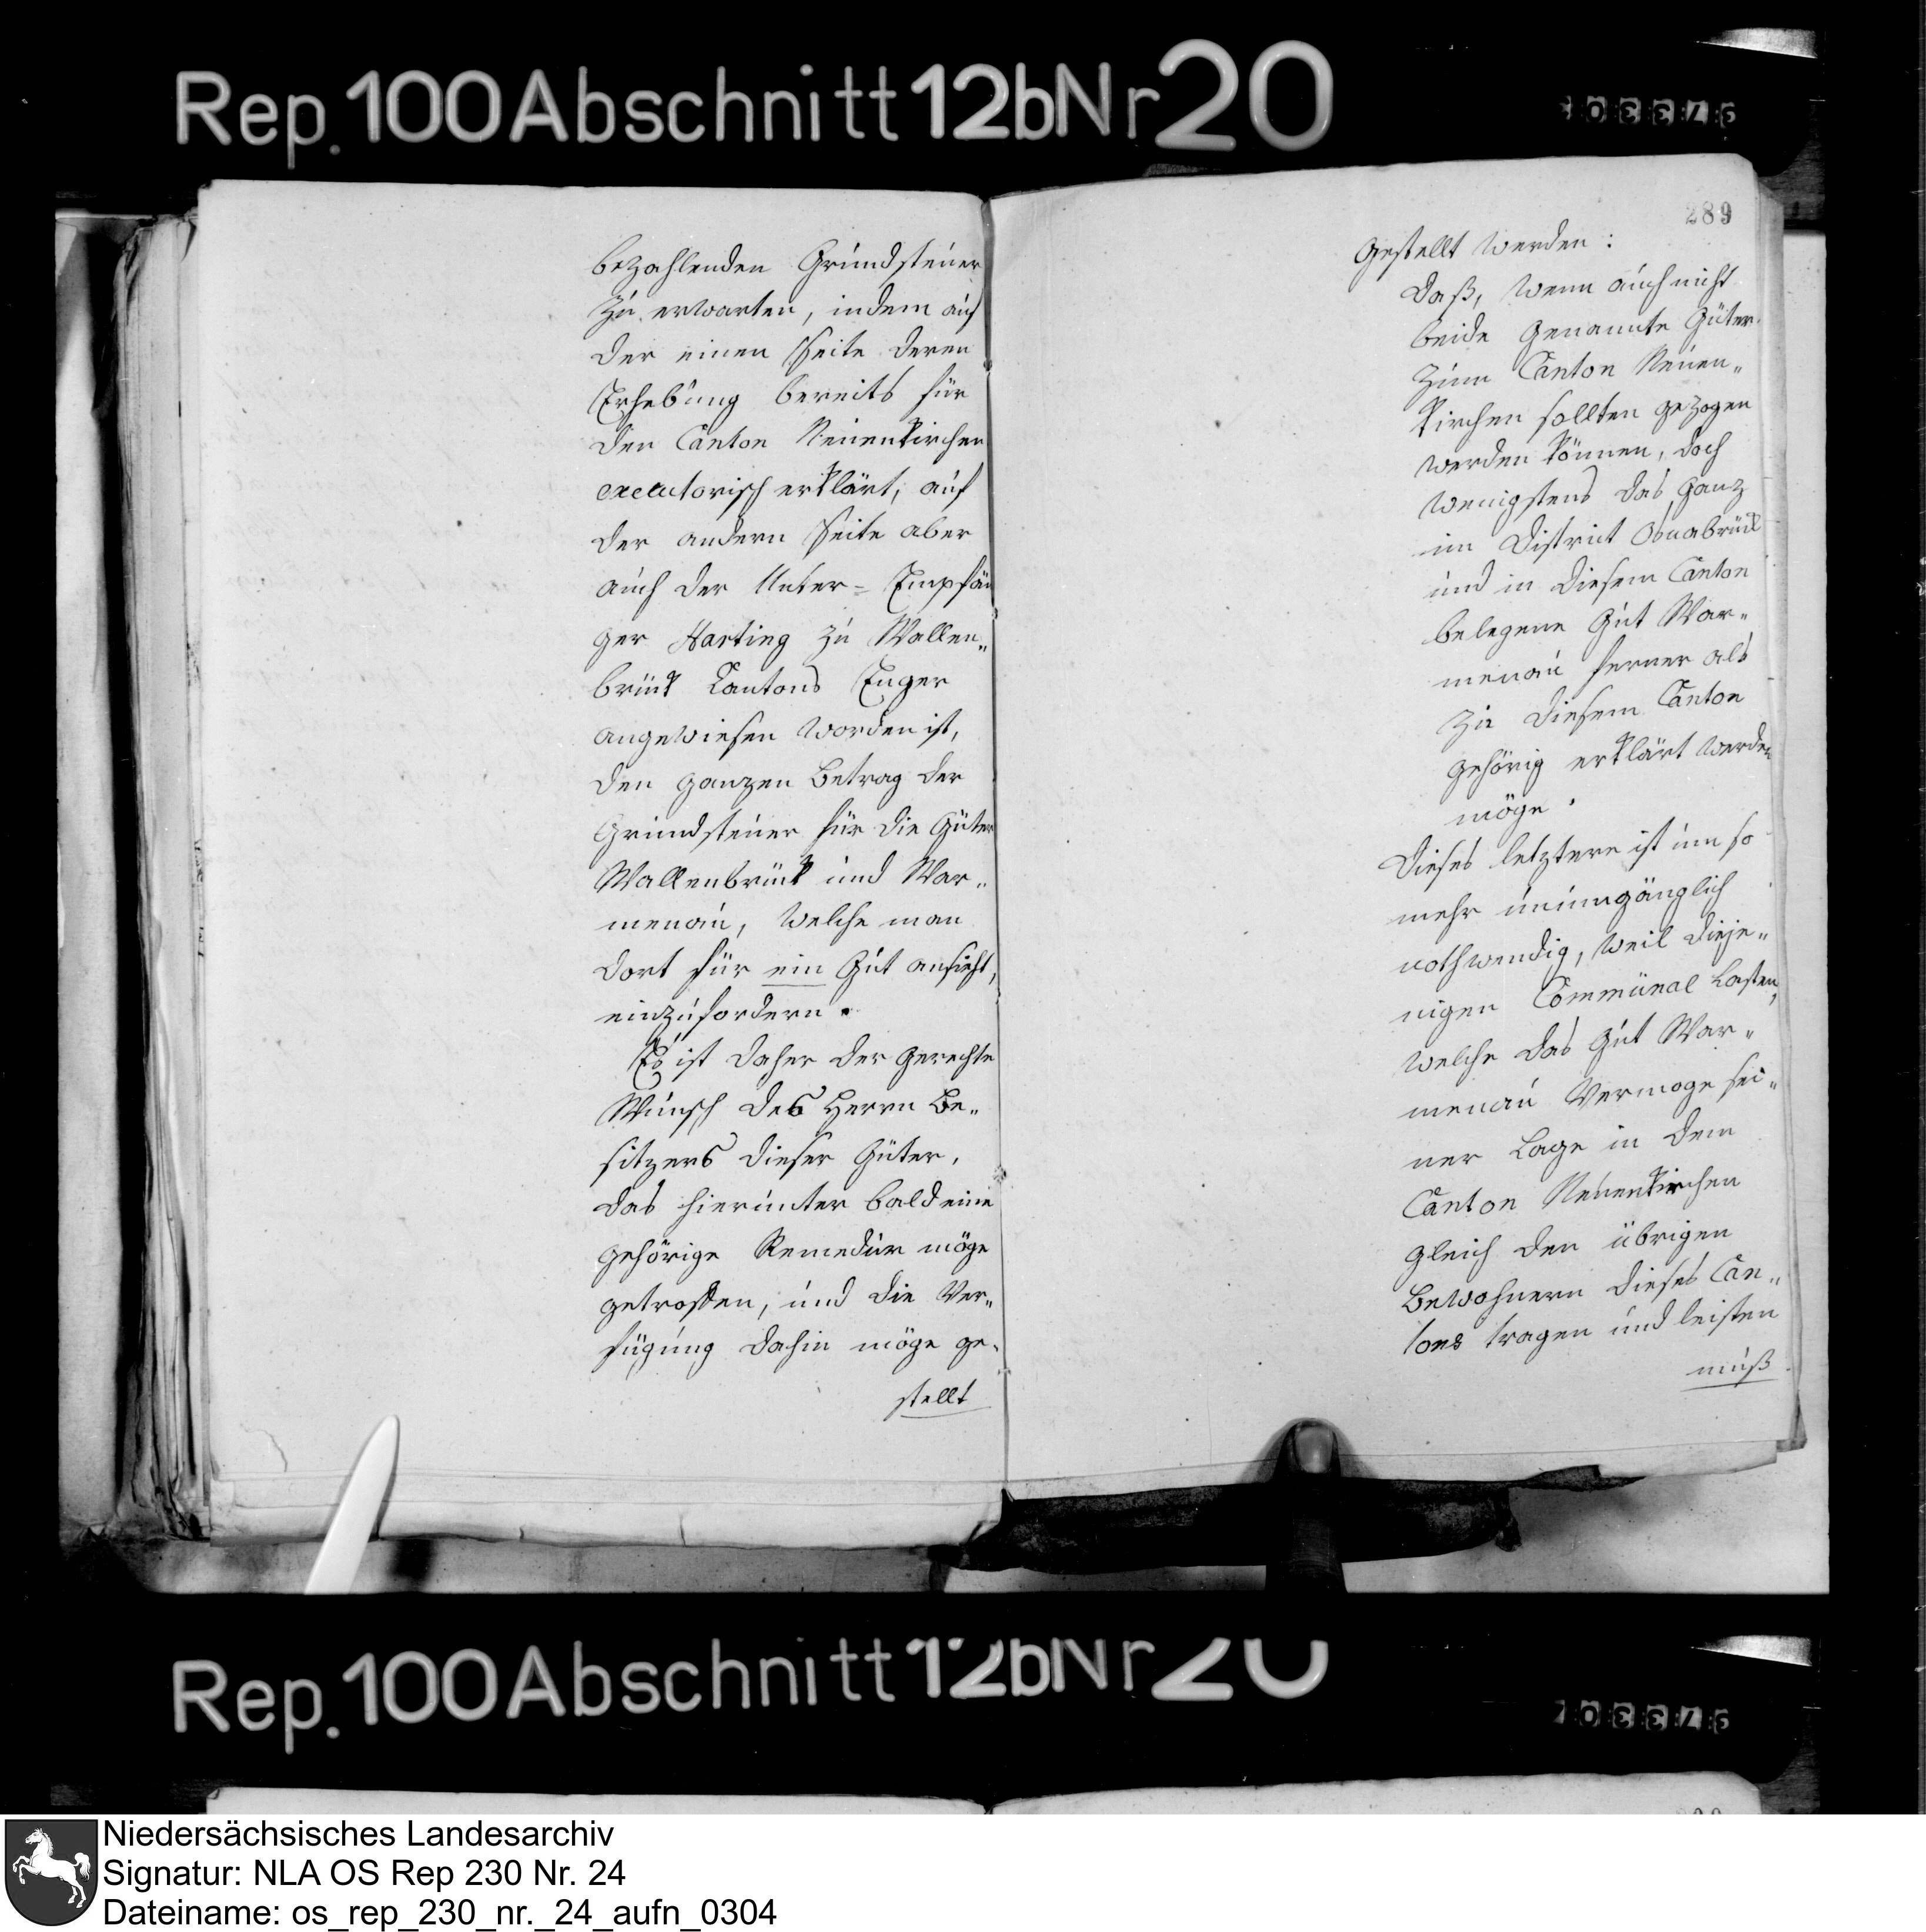 Rep. 100 Abschnitt 12b Nr 20
bezahlenden Grundsteuer
zu erwarten, indem auf
der einen Seite deren
Erhebung bereits für
den Canton Neuenkirchen
executorisch erklärt, auf
der andern Seite aber
auch der Unter= Empfän
ger Harting zu Wallen„
brück Cantons Enger
angewiesen worden ist,
den ganzen Betrag der
Grundsteuer für die Güter
Wallenbrück und War„
menau, welche man
dort für ein Gut ansieht,
einzufordern.
Es ist daher der gerechte
Wunsch des Herrn Be„
sitzers dieser Güter,
das hierunter bald eine
gehörige Remedur möge
getroffen, und die Ver„
fügung dahin möge ge„
stellt
289
gestellt werden:
Daß, wenn auch nicht
beide genannte Güter
zum Canton Neuen„
kirchen sollten gezogen
werden können, doch
wenigstens das ganz
im District Osnabrück
und in diesem Canton
belegene Gut War„
menau ferner als
zu diesem Canton
gehörig erklärt werden
möge.
Dieses letztere ist um so
mehr unumgänglich
nothwendig, weil dieje„
nigen Communal Lasten,
welche das Gut War„
menau Vermoge sei„
ner Lage in dem
Canton Neuenkirchen
gleich den übrigen
Bewohnern dieses Can„
tons tragen und leisten
muß
Rep. 100 Abschnitt 12b Nr 20
Niedersächsisches Landesarchiv
Signatur: NLA OS Rep 230 Nr. 24
Dateiname: os_rep_230_nr._24_aufn_0304